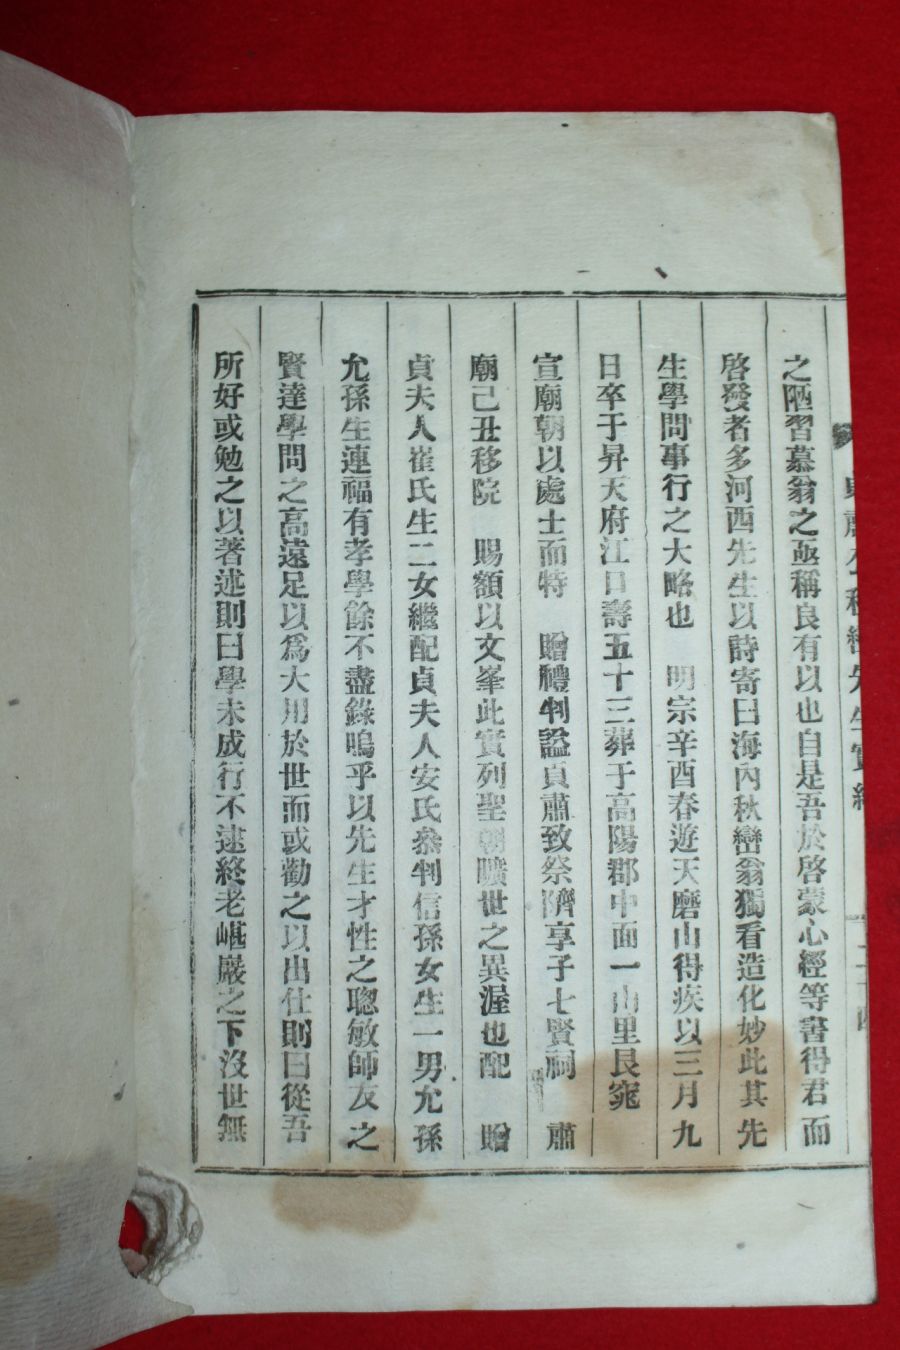 先生實紀
之陋習慕翁之亟稱良有以也自是吾於啓蒙心經等書得君而
啓發者多河西先生以詩寄曰海內秋巒翁獨看造化妙此其先
生學問事行之大略也 明宗辛酉春遊天磨山得疾以三月九
日卒于昇天府江口壽五十三葬于高陽郡中面一山里艮寃
宣廟朝以處士而特 贈禮判謚貞肅致祭隮享子七賢祠 肅
廟己丑移院 賜額以文峯此實列聖朝曠世之異渥也配 贈
貞夫人崔氏生二女繼配貞夫人安氏叅判信孫女生一男允孫
允孫生連福有孝學餘不盡錄嗚乎以先生才性之聰敏師友之
賢達學問之高遠足以爲大用於世而或勸之以出仕則曰從吾
所好或勉之以著述則曰學未成行不逮終老嵁巖之下沒世無